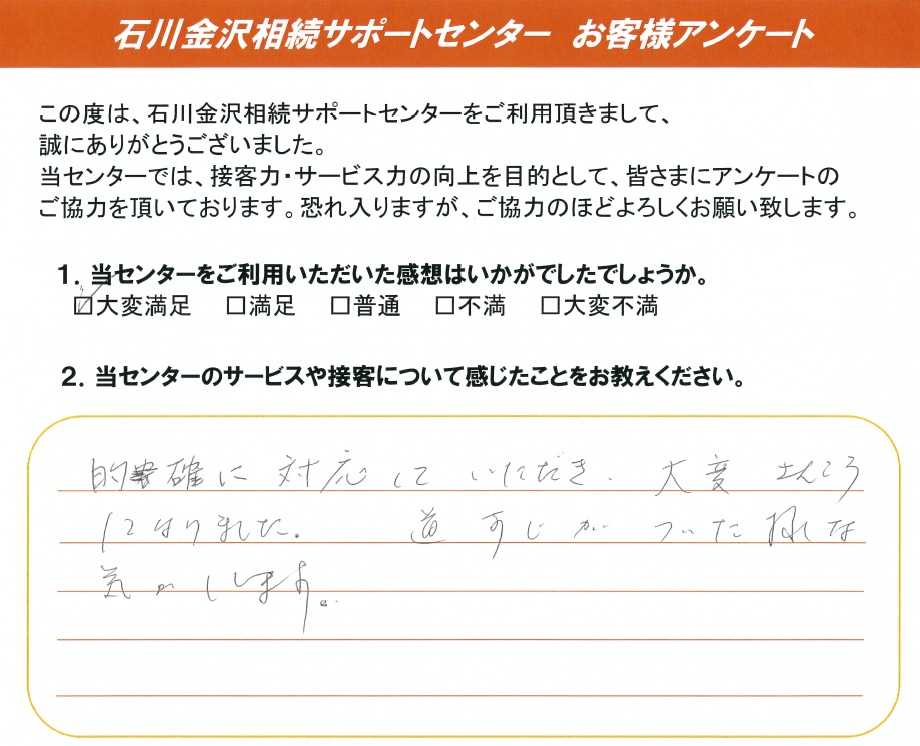 石川金沢相続サポートセンター お客様アンケート
この度は、石川金沢相続サポートセンターをご利用頂きまして、
誠にありがとうございました。
当センターでは、接客力・サービス力の向上を目的として、皆さまにアンケートの
ご協力を頂いております。恐れ入りますが、ご協力のほどよろしくお願い致します。
1. 当センターをご利用いただいた感想はいかがでしたでしょうか。
☑大変満足 □満足 □普通 □不満 □大変不満
2. 当センターのサービスや接客について感じたことをお教えください。
的確に対応していただき、大変さんこう
になりました。 道すじがついた様な
気がします。